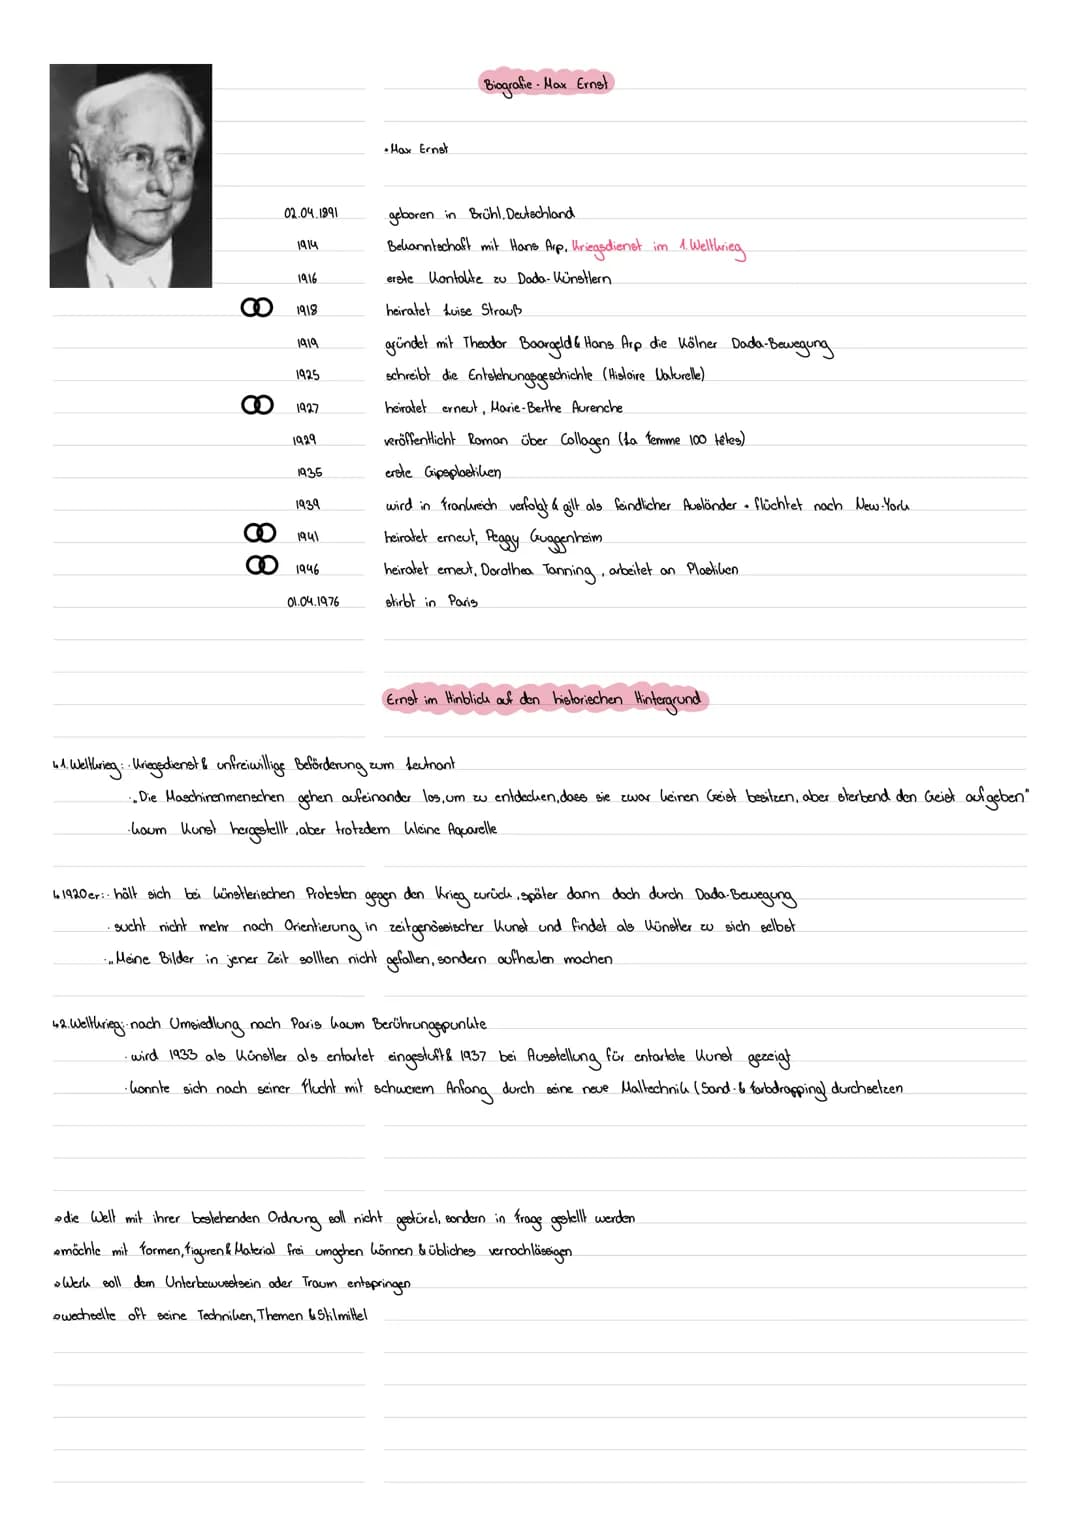 Biografie - Max Ernst
• Max Ernst
02.04.1891 geboren in Brühl, Deutschland
1914 Bekanntschaft mit Hans Arp, Kriegsdienst im 1. Weltkrieg
1916 erste Kontakte zu Dada-Künstlern
1918 heiratet Luise Strauß
1919 gründet mit Theodor Baargeld & Hans Arp die Kölner Dada-Bewegung
1925 schreibt die Entstehungsgeschichte (Histoire Naturelle)
1927 heiratet erneut, Marie-Berthe Aurenche
1929 veröffentlicht Roman über Collagen (La femme 100 têtes)
1935 erste Gipsplastiken
1939 wird in Frankreich verfolgt & gilt als feindlicher Ausländer • flüchtet nach New-York
1941 heiratet erneut, Peggy Guggenheim
1946 heiratet erneut, Dorothea Tanning, arbeitet an Plastiken
01.04.1976 stirbt in Paris
Ernst im Hinblick auf den historischen Hintergrund
↳ 1. Weltkrieg: · Kriegsdienst & unfreiwillige Beförderung zum Leutnant
· „Die Maschinenmenschen gehen aufeinander los, um zu entdecken, dass sie zwar keinen Geist besitzen, aber sterbend den Geist aufgeben"
· kaum Kunst hergestellt, aber trotzdem kleine Aquarelle
↳ 1920er: · hält sich bei künstlerischen Protesten gegen den Krieg zurück, später dann doch durch Dada-Bewegung
· sucht nicht mehr nach Orientierung in zeitgenössischer Kunst und findet als Künstler zu sich selbst
· „Meine Bilder in jener Zeit sollten nicht gefallen, sondern aufheulen machen
↳ 2. Weltkrieg: · nach Umsiedlung nach Paris kaum Berührungspunkte
· wird 1933 als Künstler als entartet eingestuft & 1937 bei Ausstellung für entartete Kunst gezeigt
· konnte sich nach seiner Flucht mit schwerem Anfang durch seine neue Maltechnik (Sand- & Farbdropping) durchsetzen
⇒ die Welt mit ihrer bestehenden Ordnung soll nicht gestürzt, sondern in Frage gestellt werden
⇒ möchte mit Formen, Figuren & Material frei umgehen können & übliches vernachlässigen
⇒ Werk soll dem Unterbewusstsein oder Traum entspringen
⇒ wechselte oft seine Techniken, Themen & Stilmittel